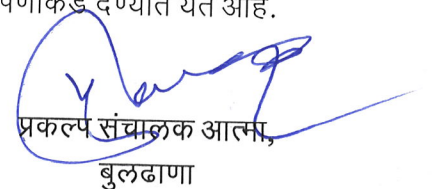 देण्यात येत आहे.
प्रकल्प संचालक आत्मा,
बुलढाणा